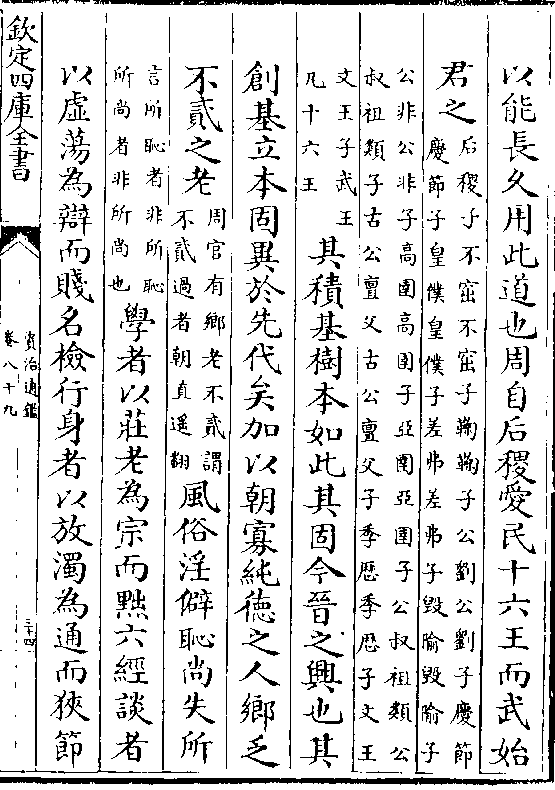 以能長久用此道也周自后稷愛民十六王而武始
君之
后稷子不窋不窋子鞠鞠子公劉公劉子慶節
慶節子皇僕皇僕子差弗差弗子毀隃毀隃子
公非公非子高圉高圉子亞圉亞圉子公叔祖類公
叔祖類子古公亶父古公亶父子季厯季厯子文王
文王子武王
凡十六王
其積基樹本如此其固今晉之興也其
創基立本固異於先代矣加以朝寡純德之人鄉乏
不貳之老
周官有鄉老不貳謂
不貳過者朝直遥翻
風俗淫僻恥尚失所
言所恥者非所恥
所尚者非所尚也
學者以莊老為宗而黜六經談者
以虛蕩為辯而賤名檢行身者以放濁為通而狹節
欽定四庫全書
資治通鑑
卷八十九
三十四